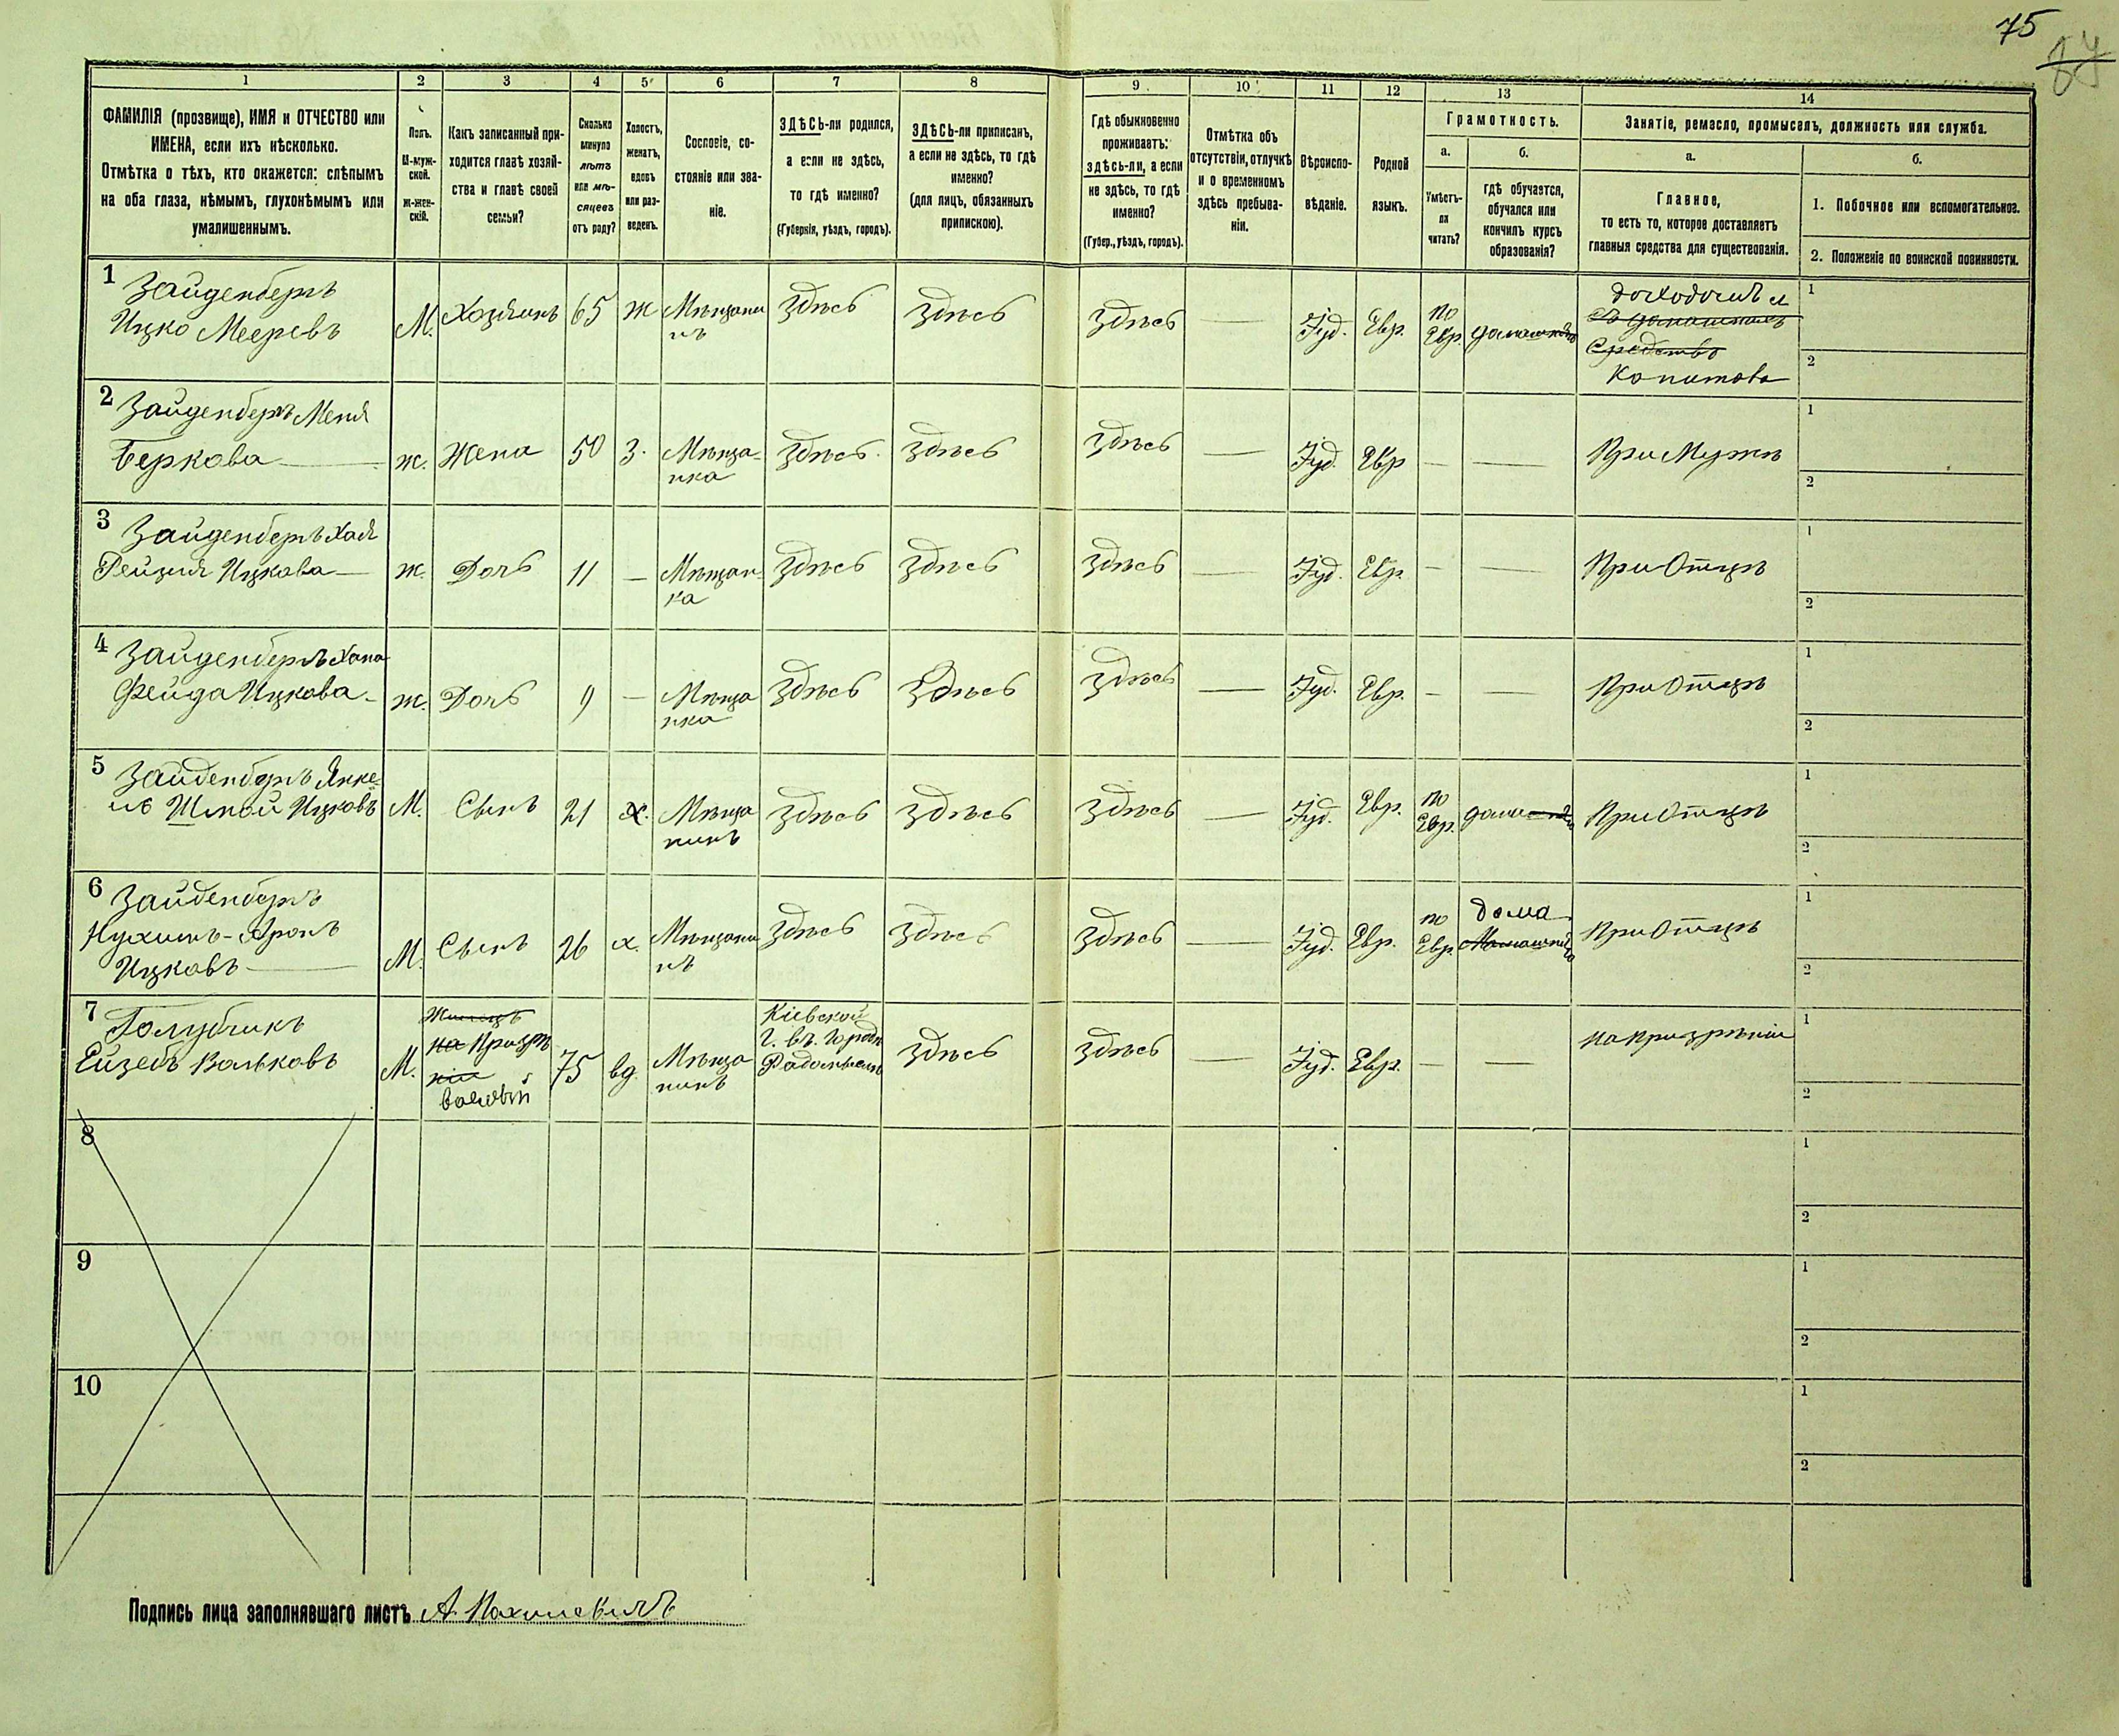 75
1
2
3
4
5
6
7
8
9
10
11
12
13
14
ФАМИЛІЯ (прозвище), ИМЯ и ОТЧЕСТВО или
ИМЕНА, если ихъ нѣсколько.
Отмѣтка о тѣхъ, кто окажется: слѣпымъ
на оба глаза, нѣмымъ, глухонѣмымъ или
умалишеннымъ.
Полъ.
М-муж-
ской.
Ж-жен-
скій.
Какъ записанный при-
ходится главѣ хозяй-
ства и главѣ своей
семьи?
Сколько
минуло
лѣтъ
или мѣ-
сяцевъ
отъ роду?
Холостъ,
женатъ,
вдовъ
или раз-
веденъ.
Сословіе, со-
стояніе или зва-
ніе.
ЗДѢСЬ-ли родился,
а если не здѣсь,
то гдѣ именно?
(Губернія, уѣздъ, городъ).
ЗДѢСЬ-ли приписанъ,
а если не здѣсь, то гдѣ
именно?
(для лицъ, обязанныхъ
припискою).
Гдѣ обыкновенно
проживаетъ:
здѣсь-ли, а если
не здѣсь, то гдѣ
именно?
(Губер., уѣздъ, городъ).
Отмѣтка объ
отсутствіи, отлучкѣ
и о временномъ
здѣсь пребыва-
ніи.
Вѣроиспо-
вѣданіе.
Родной
языкъ.
Грамотность.
а.
б.
Умѣетъ-
ли
читать?
гдѣ обучается,
обучался или
кончилъ курсъ
образованія?
Занятіе, ремесло, промыселъ, должность или служба.
а.
б.
Главное,
то есть то, которое доставляетъ
главныя средства для существованія.
1. Побочное или вспомогательное.
2. Положеніе по воинской повинности.
1 Зайденбергъ
Ицко Мееровъ
М. Хозяинъ 65 ж Мѣщани
нъ
здѣсь здѣсь здѣсь — Іуд. Евр. по
Евр. домашнѣе
доходомъ съ
Средствъ
капитова
1
2
2 Зайденбергъ Меня
Беркова
ж. Жена 50 З. Мѣща-
нка
здѣсь здѣсь здѣсь — Іуд. Евр — — При Мужѣ
1
2
3 Зайденбергъ Хая
Рейзия Ицкова
ж. Дочь 11 — Мѣщан-
ка
здѣсь здѣсь здѣсь — Іуд. Евр. — — При Отцѣ
1
2
4 Зайденбергъ Хана
Фейга Ицкова
ж. Дочь 9 — Мѣща
нка
здѣсь здѣсь здѣсь — Іуд. Евр. — — При Отцѣ
1
2
5 Зайденбергъ Янке-
ль Ицковъ
М. Сынъ 21 х. Мѣща
нинъ
здѣсь здѣсь здѣсь — Іуд. Евр. по
Евр. дома При Отцѣ
1
2
6 Зайденбергъ
Нухимъ-Аронъ
Ицковъ
М. Сынъ 26 х. Мѣщани
нъ
здѣсь здѣсь здѣсь — Іуд. Евр. по
Евр. дома При Отцѣ
1
2
7 Голубчикъ
Ейзебъ Вольковъ
М. Жилецъ
на Призрѣ
ніи
75 вд. Мѣща
нинъ
Кіевской
Г. въ. Город
Радомысль
здѣсь здѣсь — Іуд. Евр. — — на призрѣніи
1
2
8
1
2
9
1
2
10
1
2
Подпись лица заполнявшаго листъ А